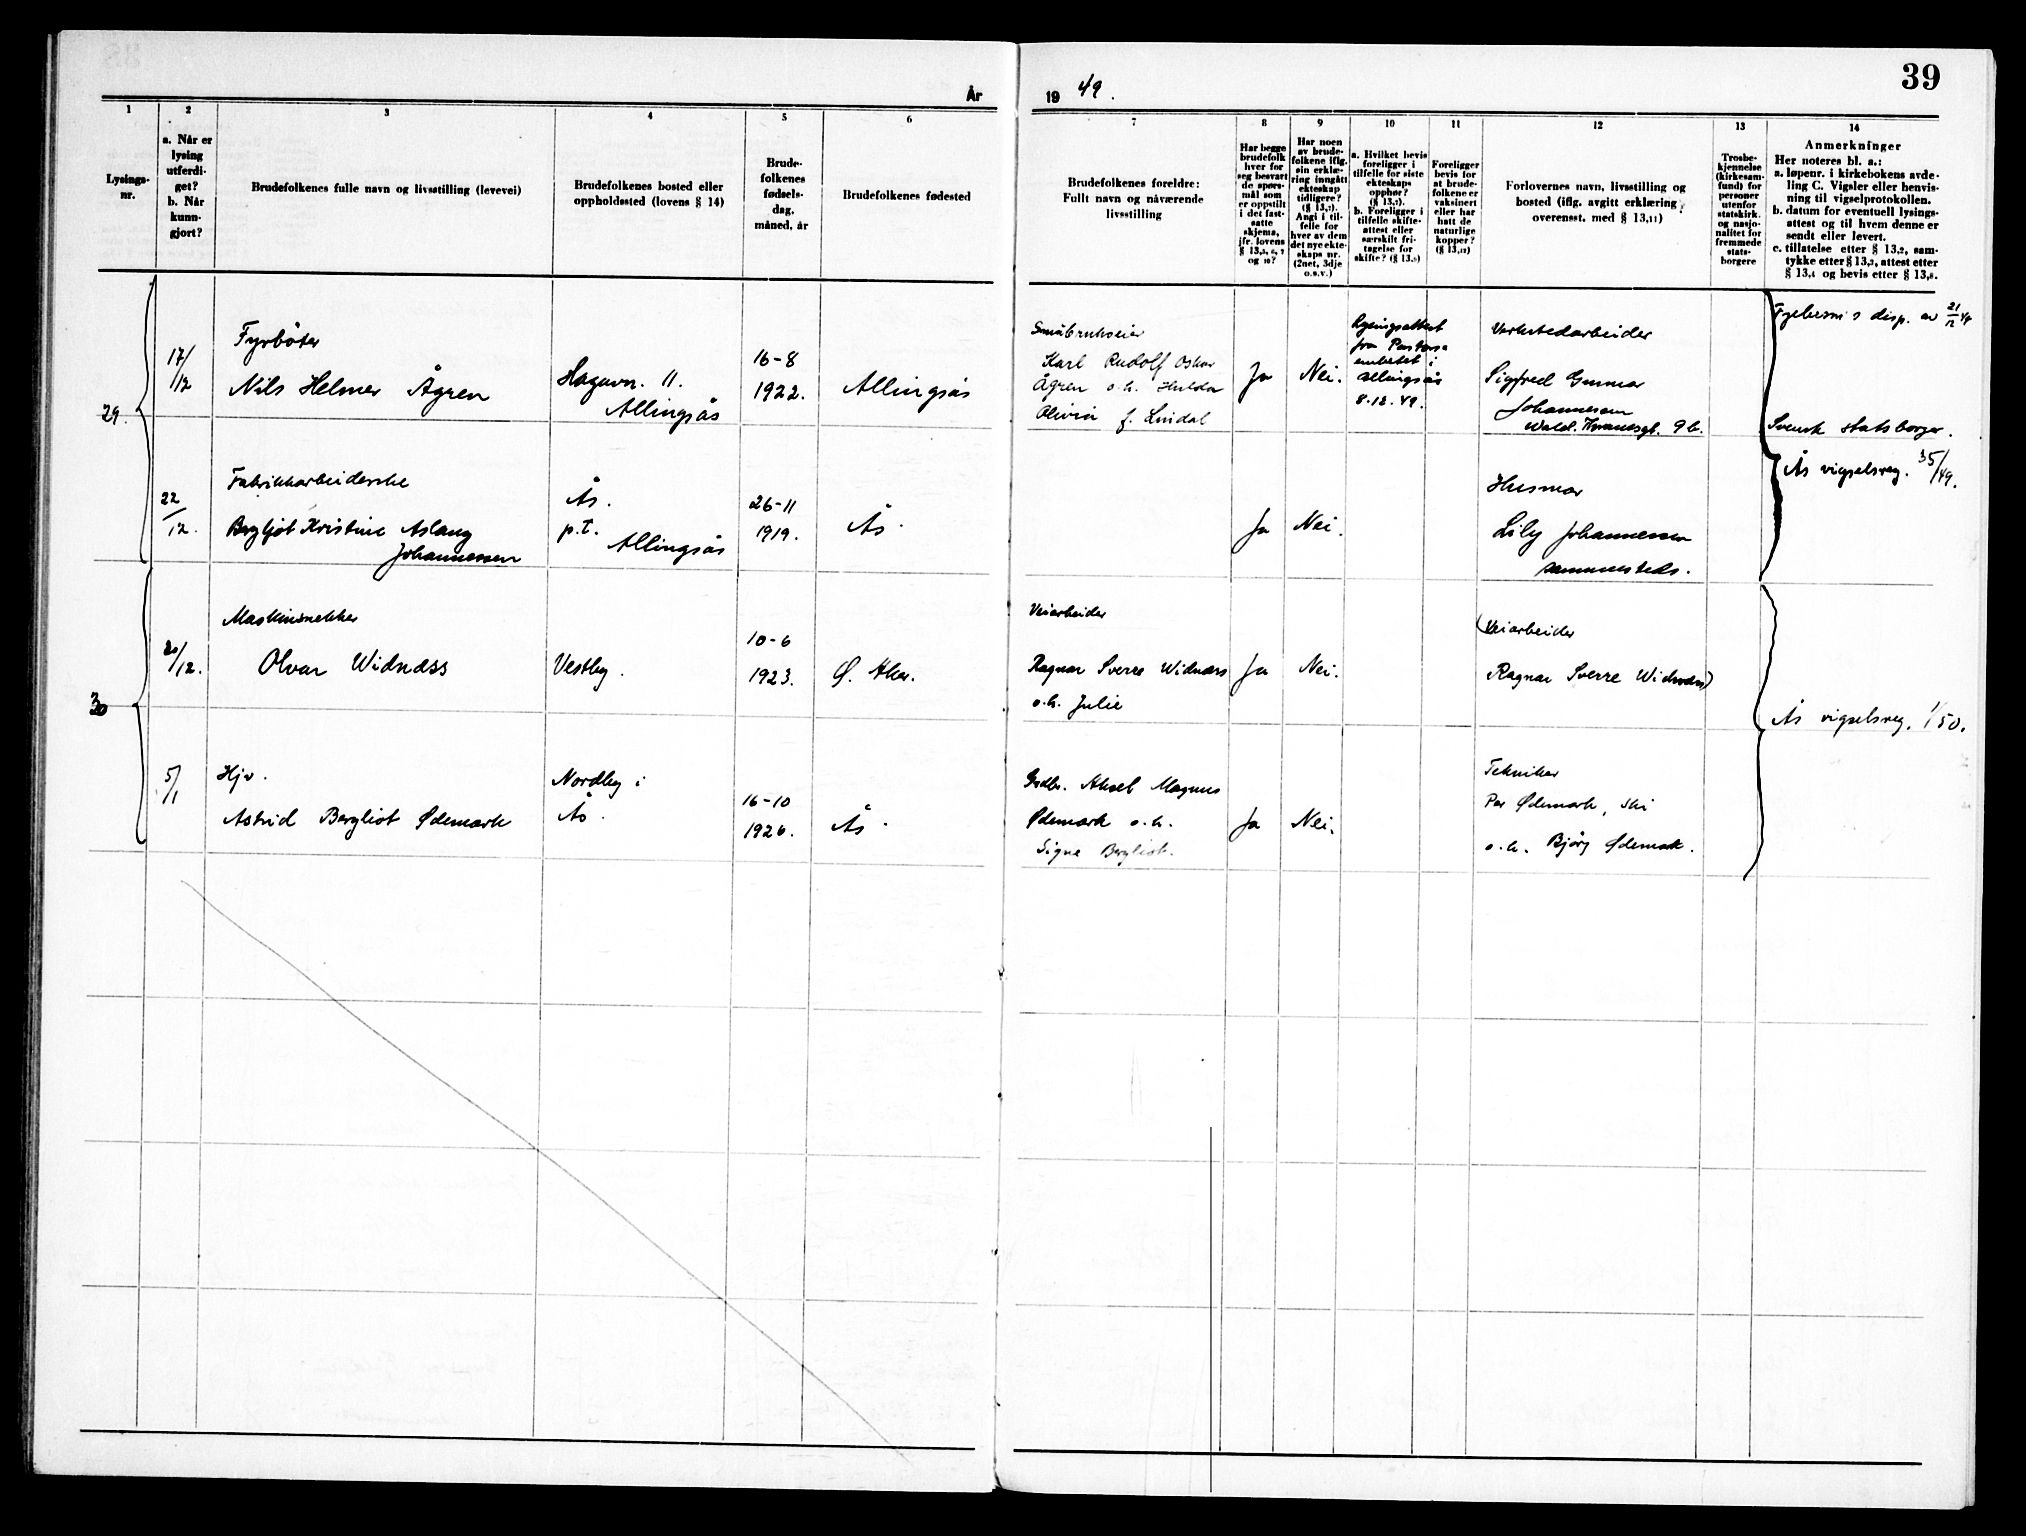 39
År
19 49.
1
2
3
4
5
6
7
8
9
10
11
12
13
14
Lysings-
nr.
a. Når er
lysing
utferdi-
get?
b. Når
kunn-
gjort?
Brudefolkenes fulle navn og livsstilling (levevei)
Brudefolkenes bosted eller
oppholdssted (lovens § 14)
Brude-
folkenes
fødsels-
dag,
måned, år
Brudefolkenes fødested
Brudefolkenes foreldre:
Fullt navn og nåværende
livsstilling
Har begge
brudefolk
hver for
seg besvart
de spørs-
mål som
er oppstilt
i det fast-
satte
skjema,
jfr. lovens
§ 13,5, 6, 7
og 10?
Har noen
av brude-
folkene iflg.
sin erklæ-
ring inngått
ekteskap
tidligere?
(§ 13,7).
Angi i til-
felle for
hver av dem
det nye ekte-
skaps nr.
(2net, 3dje
o.s.v.)
a. Hvilket bevis
foreligger i
tilfelle for siste
ekteskaps
opphør?
(§ 13,7).
b. Foreligger i
tilfelle skifte-
attest eller
særskilt fri-
tagelse for
skifte? (§ 13,9)
Foreligger
bevis for
at brude-
folkene er
vaksinert
eller har
hatt de
naturlige
kopper?
(§ 13,12)
Forlovernes navn, livsstilling og
bosted (iflg. avgitt erklæring
overensst. med § 13,11)
Trosbe-
kjennelse
(kirkesam-
fund) for
personer
utenfor
statskirk.
og nasjo-
nalitet for
fremmede
stats-
borgere
Anmerkninger
Her noteres bl. a.:
a. løpenr. i kirkebokens avde-
ling C. Vigsler eller henvis-
ning til vigselprotokollen.
b. datum for eventuell lysings-
attest og til hvem denne er
sendt eller levert.
c. tillatelse etter § 13,2, sam-
tykke etter § 13,3, attest etter
§ 13,4 og bevis etter § 13,8.
29.
17/
/12
Fyrbøter
Nils Helmer Ågren
Hagavn. 11.
Allingsås
16-8
1922.
Allingsås
Småbrukseier
Karl Rudolf Oskar
Ågren o.h. Hulda
Olivia f. Lindal
Ja
Nei.
Lysingsattest
fra Pastors-
embetet i
Allingsås
8.12.49.
Verkstedarbeider
Sigfred Gunnar
Johannessen
9 b.
disp. av 21/12 49
Svensk statsborger.
Ås vigselsreg. 35/49.
22
/12.
Fabrikkarbeiderske
Bergljot Kristine Aslaug
Johannessen
Ås.
p.t.
Allingsås
26-11
1919.
Ås.
Ja
Nei.
Husmor
Lily Johannessen
sammesteds.
30
20/12.
Maskinsnekker
Olvar Widnæss
Vestby.
10-6
1923.
Ø. Aker.
Veiarbeider
Ragnar Sverre Widnæss
o.h. Julie
Ja
Nei.
(Veiarbeider
Ragnar Sverre Widnæss)
Ås vigselsreg. 1/50.
5/1
Hjv.
Astrid Bergliot Ødemark
Nordby i
Ås.
16-10
1926.
Ås.
Grdbr. Aksel Magnus
Ødemark o.h.
Signe Bergliot.
Ja
Nei.
Tekniker
Per Ødemark, Ski
o.h. Bjørg Ødemark.